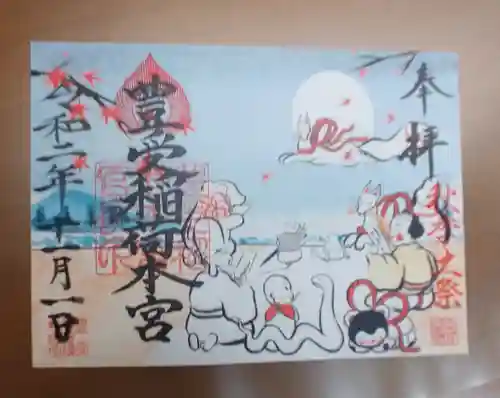 奉拝
秋季之祭
豊受稲荷本宮
令和二年十一月一日